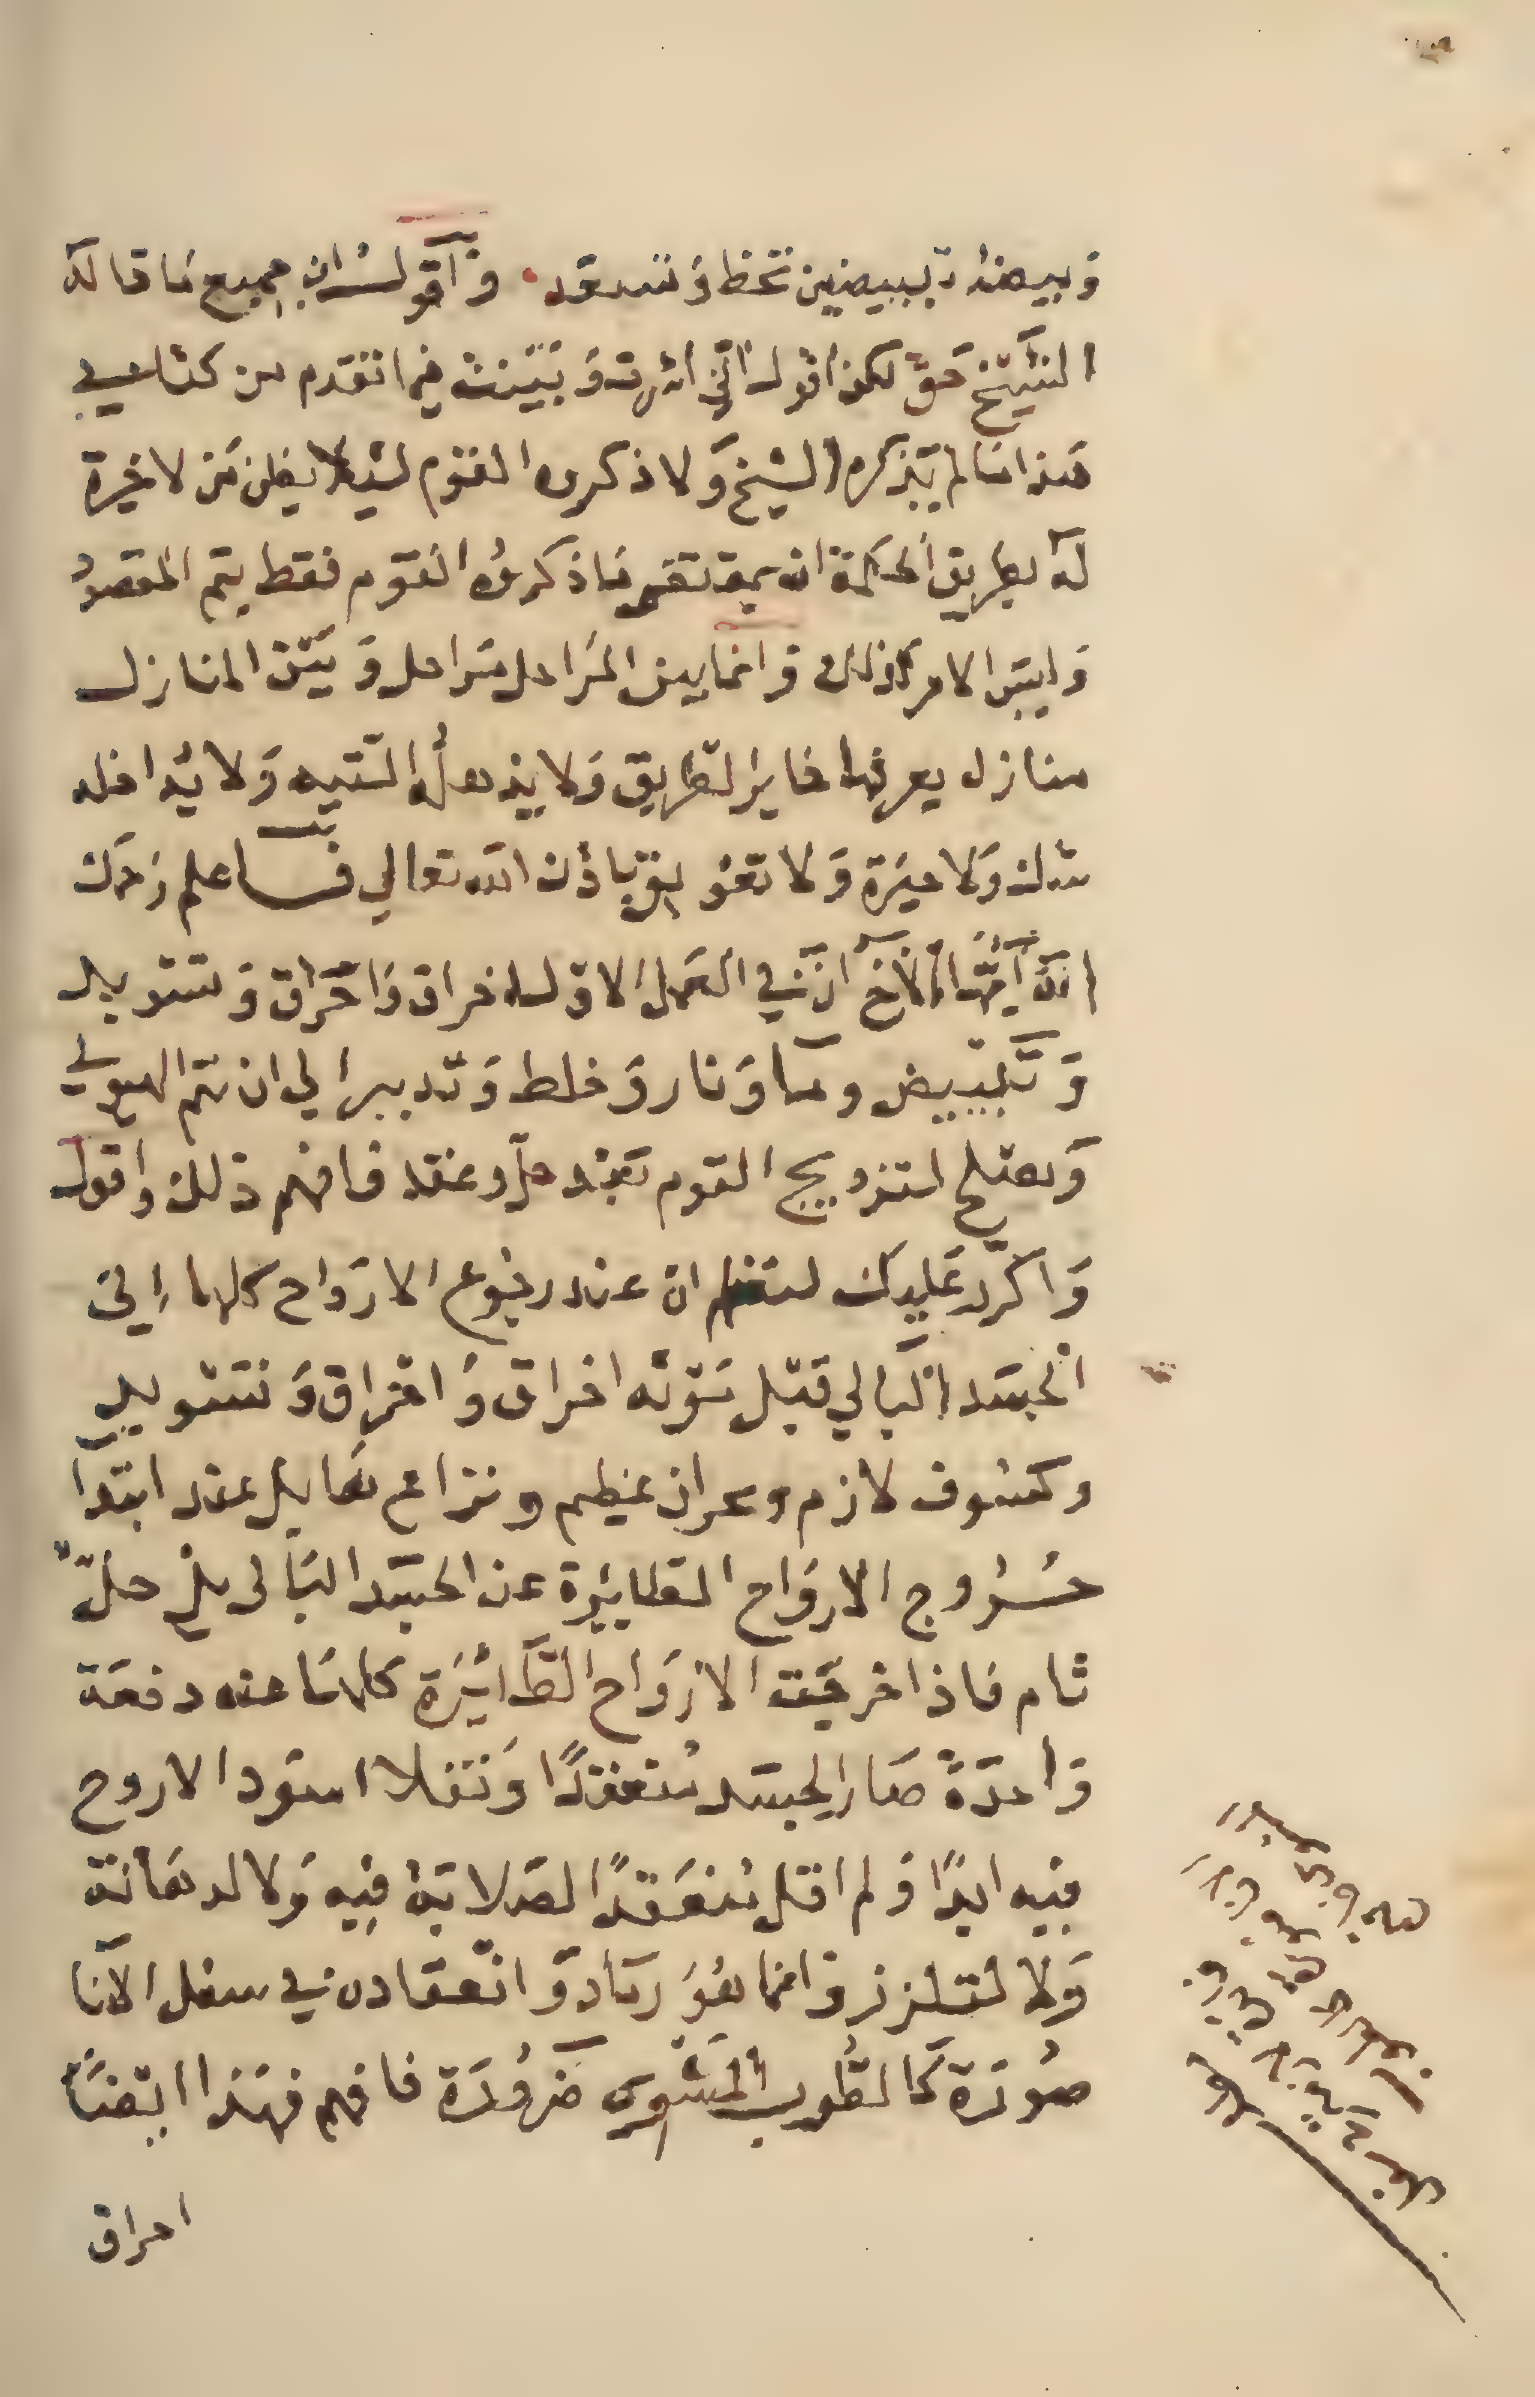 وبيضه تبييضين تحظ وتسعد وأقول ان جميع ما قاله
الشيخ حق لكن اقول اني اشرت وبينت فيما تقدم من كتابي
هذا ما لم يذكره الشيخ ولا ذكروه القوم لئلا يظن من لا خبرة
له بطريق الحكمة ان بمقتضى ما ذكروه القوم فقط يتم المقصود
وليس الامر كذلك وانما بين المراحل مراحل وبين المنازل
منازل يعرفها خابر الطريق ولا يذهله التيه ولا يداخله
شك ولا حيرة ولا تعويق باذن الله تعالي فاعلم رحمك
الله أيها الأخ أن في العمل الاول احراق واحتراق وتسويد
وتبييض وما ونار وخلط وتدبير الي ان تتم الهيولي
ويصلح لتزويج القوم بعد حل وعقد فافهم ذلك واقول
واكرر عليك لتفهم ان عند رجوع الارواح كلها إلى
الجسد البالي قبل موته احراق واحتراق وتسويد
وكسوف لازم وبحران عظيم ونزاع هايل عند ابتدآ
خروج الارواح الطايرة عن الجسد البالى بل حلّ
تام فاذا خرجت الارواح الطائرة كلها عنه دفعة
واحدة صار الجسد منعقدًا وثفلا اسود لا روح
فيه ابدًا ولم اقل منعقدًا لصلابة فيه ولا لدهانة
ولا لتلزز وانما هو رماد وانعقاده في سفل الآنا
صورة كالطوب المشوى ضرورة فافهم فهذا ايضًا
احراق